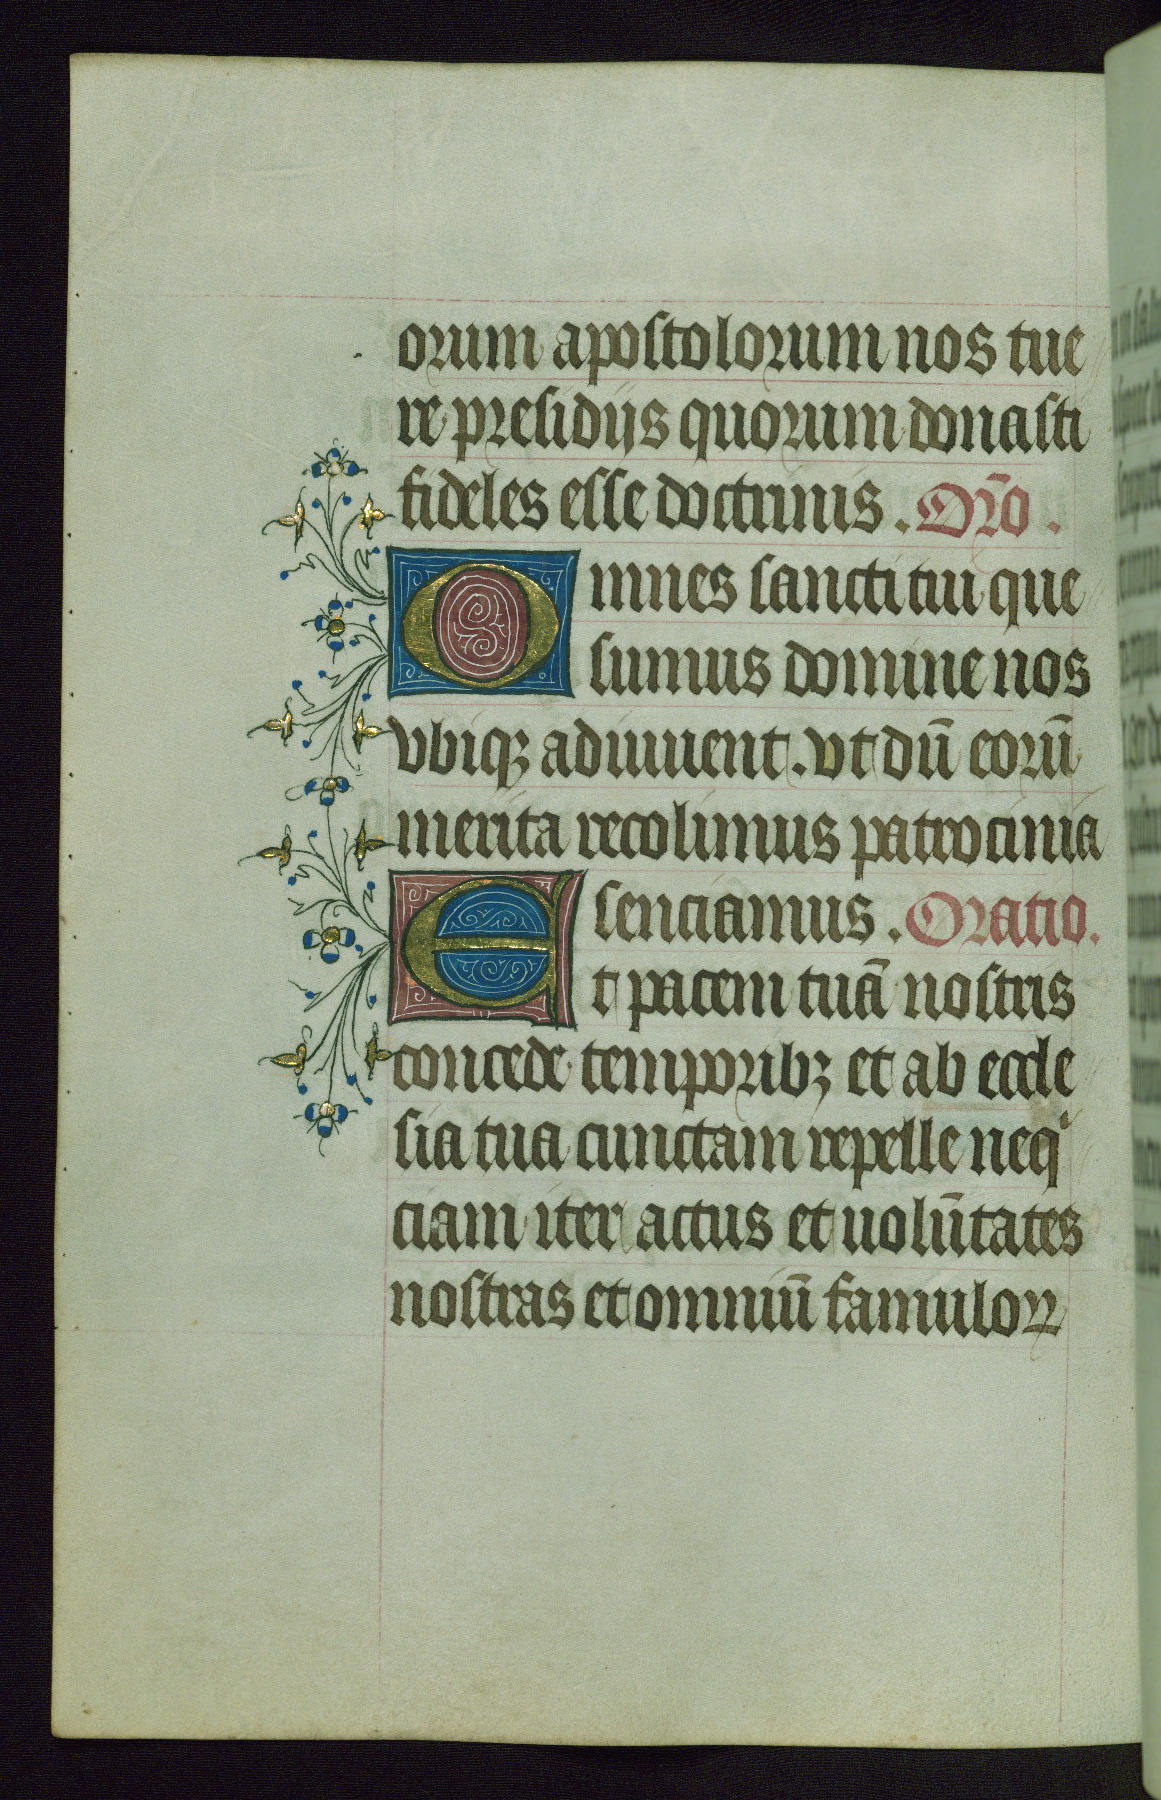 orum apostolorum nos tue
re presidijs quorum donasti
fideles esse doctrinis. Orō.
Omnes sancti tui que
sumus domine nos
vbiqꝫ adiuuent. vt dū eorū
merita recolimus patrocinia
senciamus. Oratio.
Et pacem tuā nostris
concede temporibꝫ et ab eccle
sia tua cunctam repelle neqͥ
ciam iter actus et uolūtates
nostras et omniū famuloꝝ